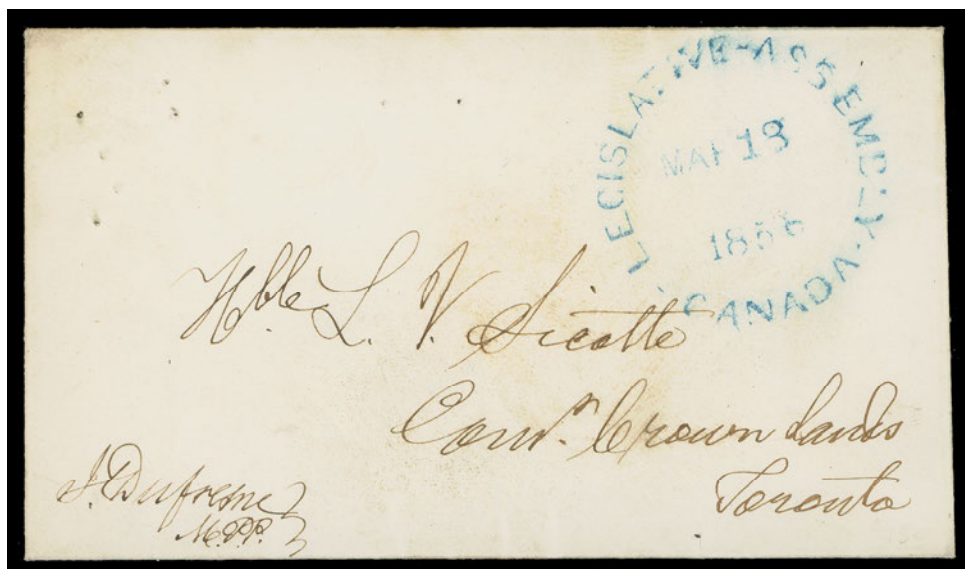 LEGISLATIVE·ASSEMBLY·
MAR 18
1858
·CANADA·
Hble L. V. Sicotte
Comr. Crown Lands
Toronto
J. Dufresne
M.P.P.